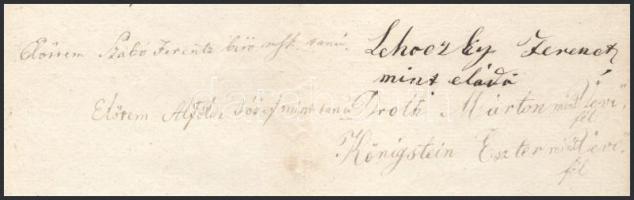 Előttem Szabó Ferentz biró mhk. tanú.
Lehoczky Ferencz
mint eladó
Előttem Alföldi József mint tanú
Droth Márton mint vevi
fél
Königstein Eszter mint vevi
fél